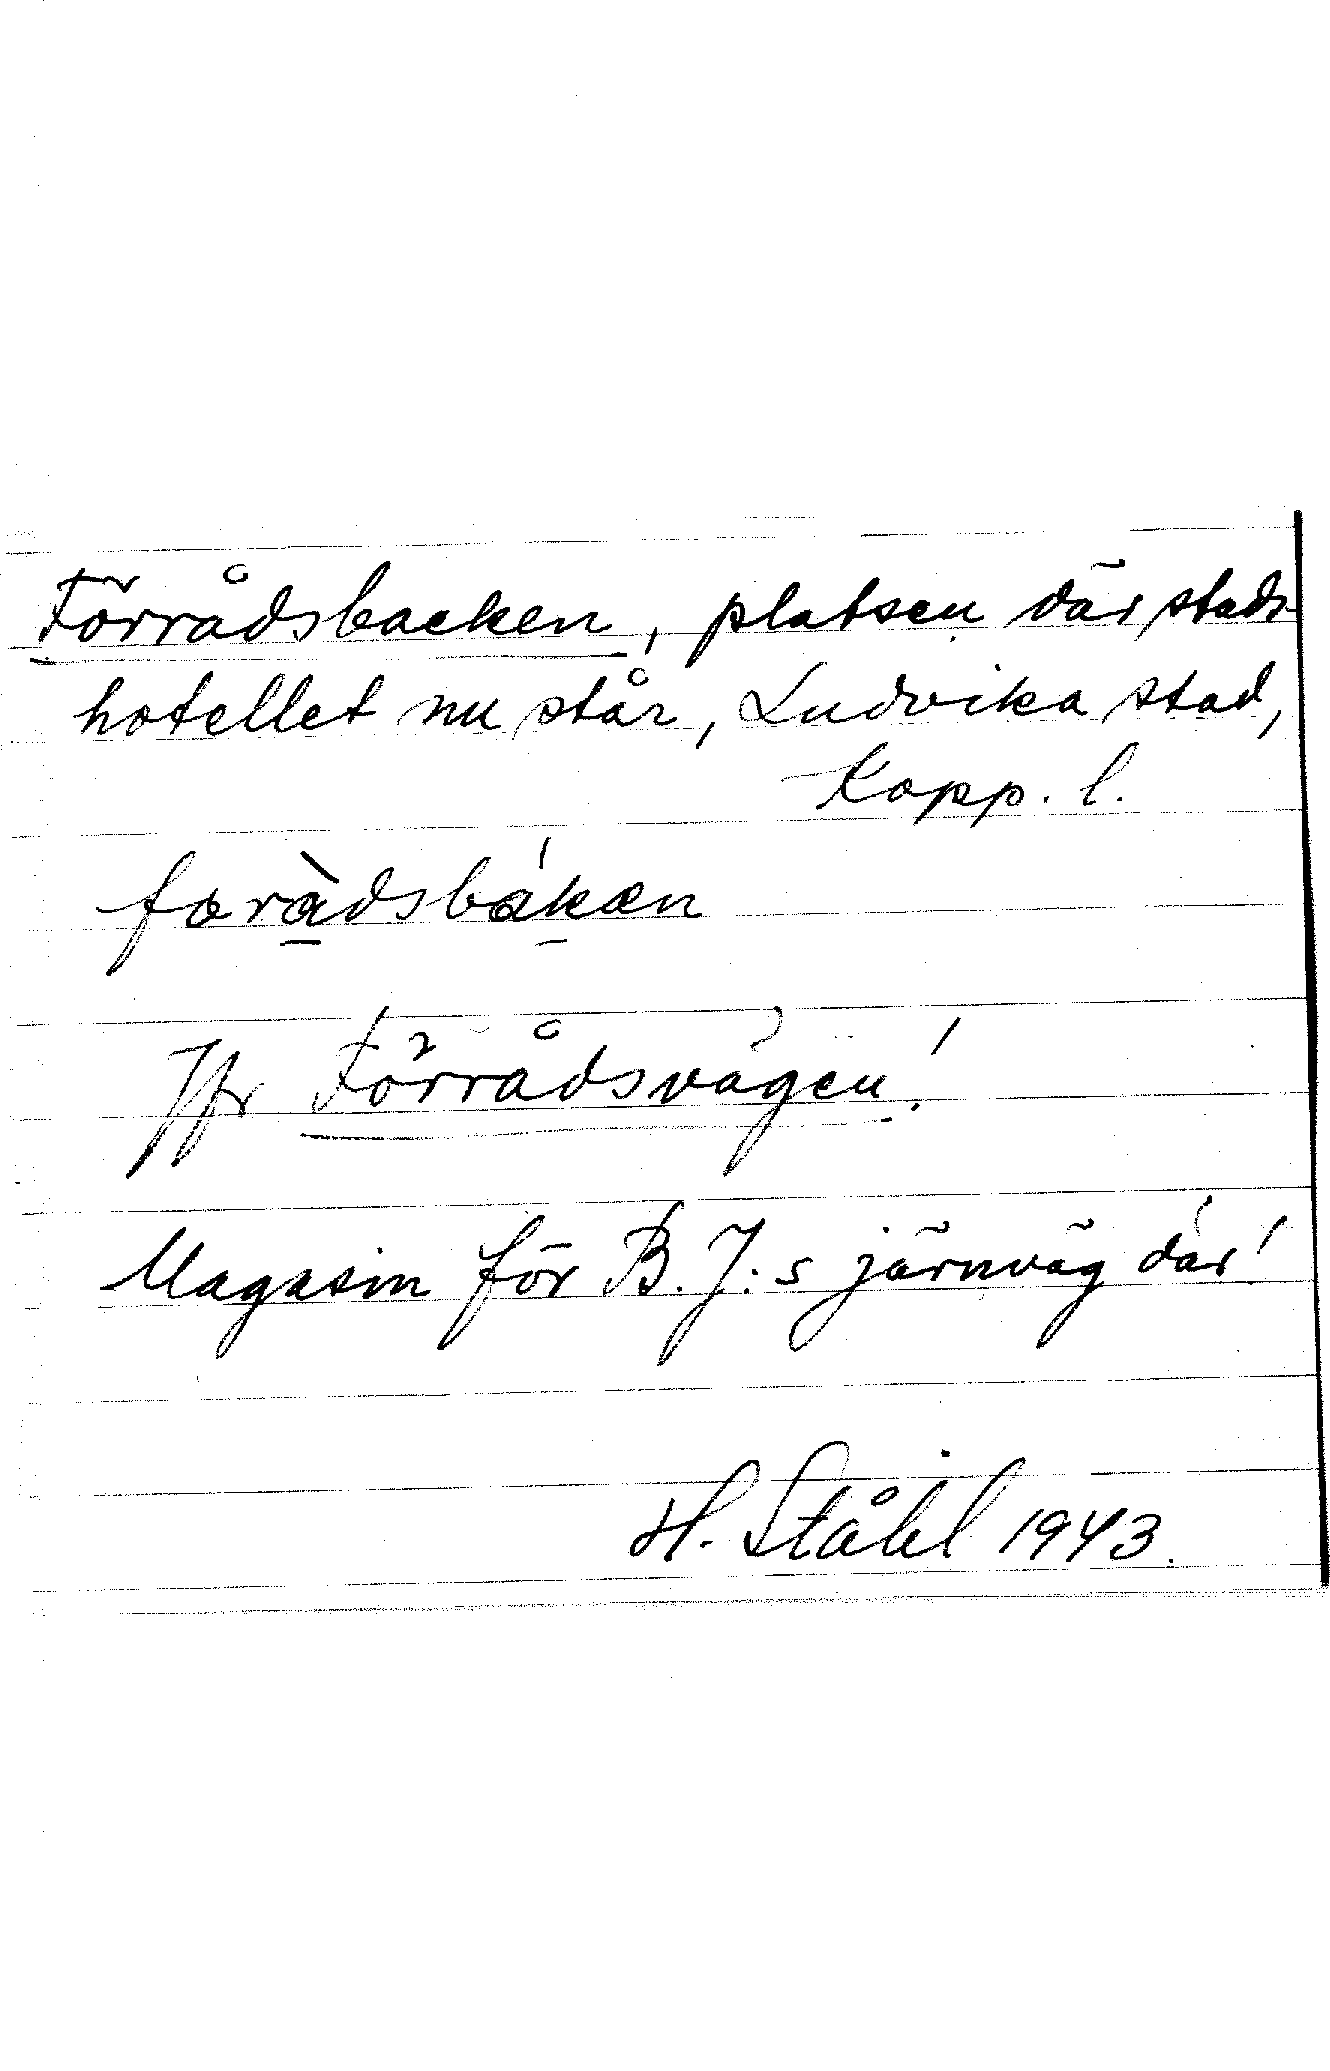 Förrådsbacken, platsen där stads-
hotellet nu står, Ludvika stad,
Kopp. l.
foràdsbákæn
Jfr Förrådsvägen!
Magasin för B.J:s järnväg där!
H. Ståhl 1943.